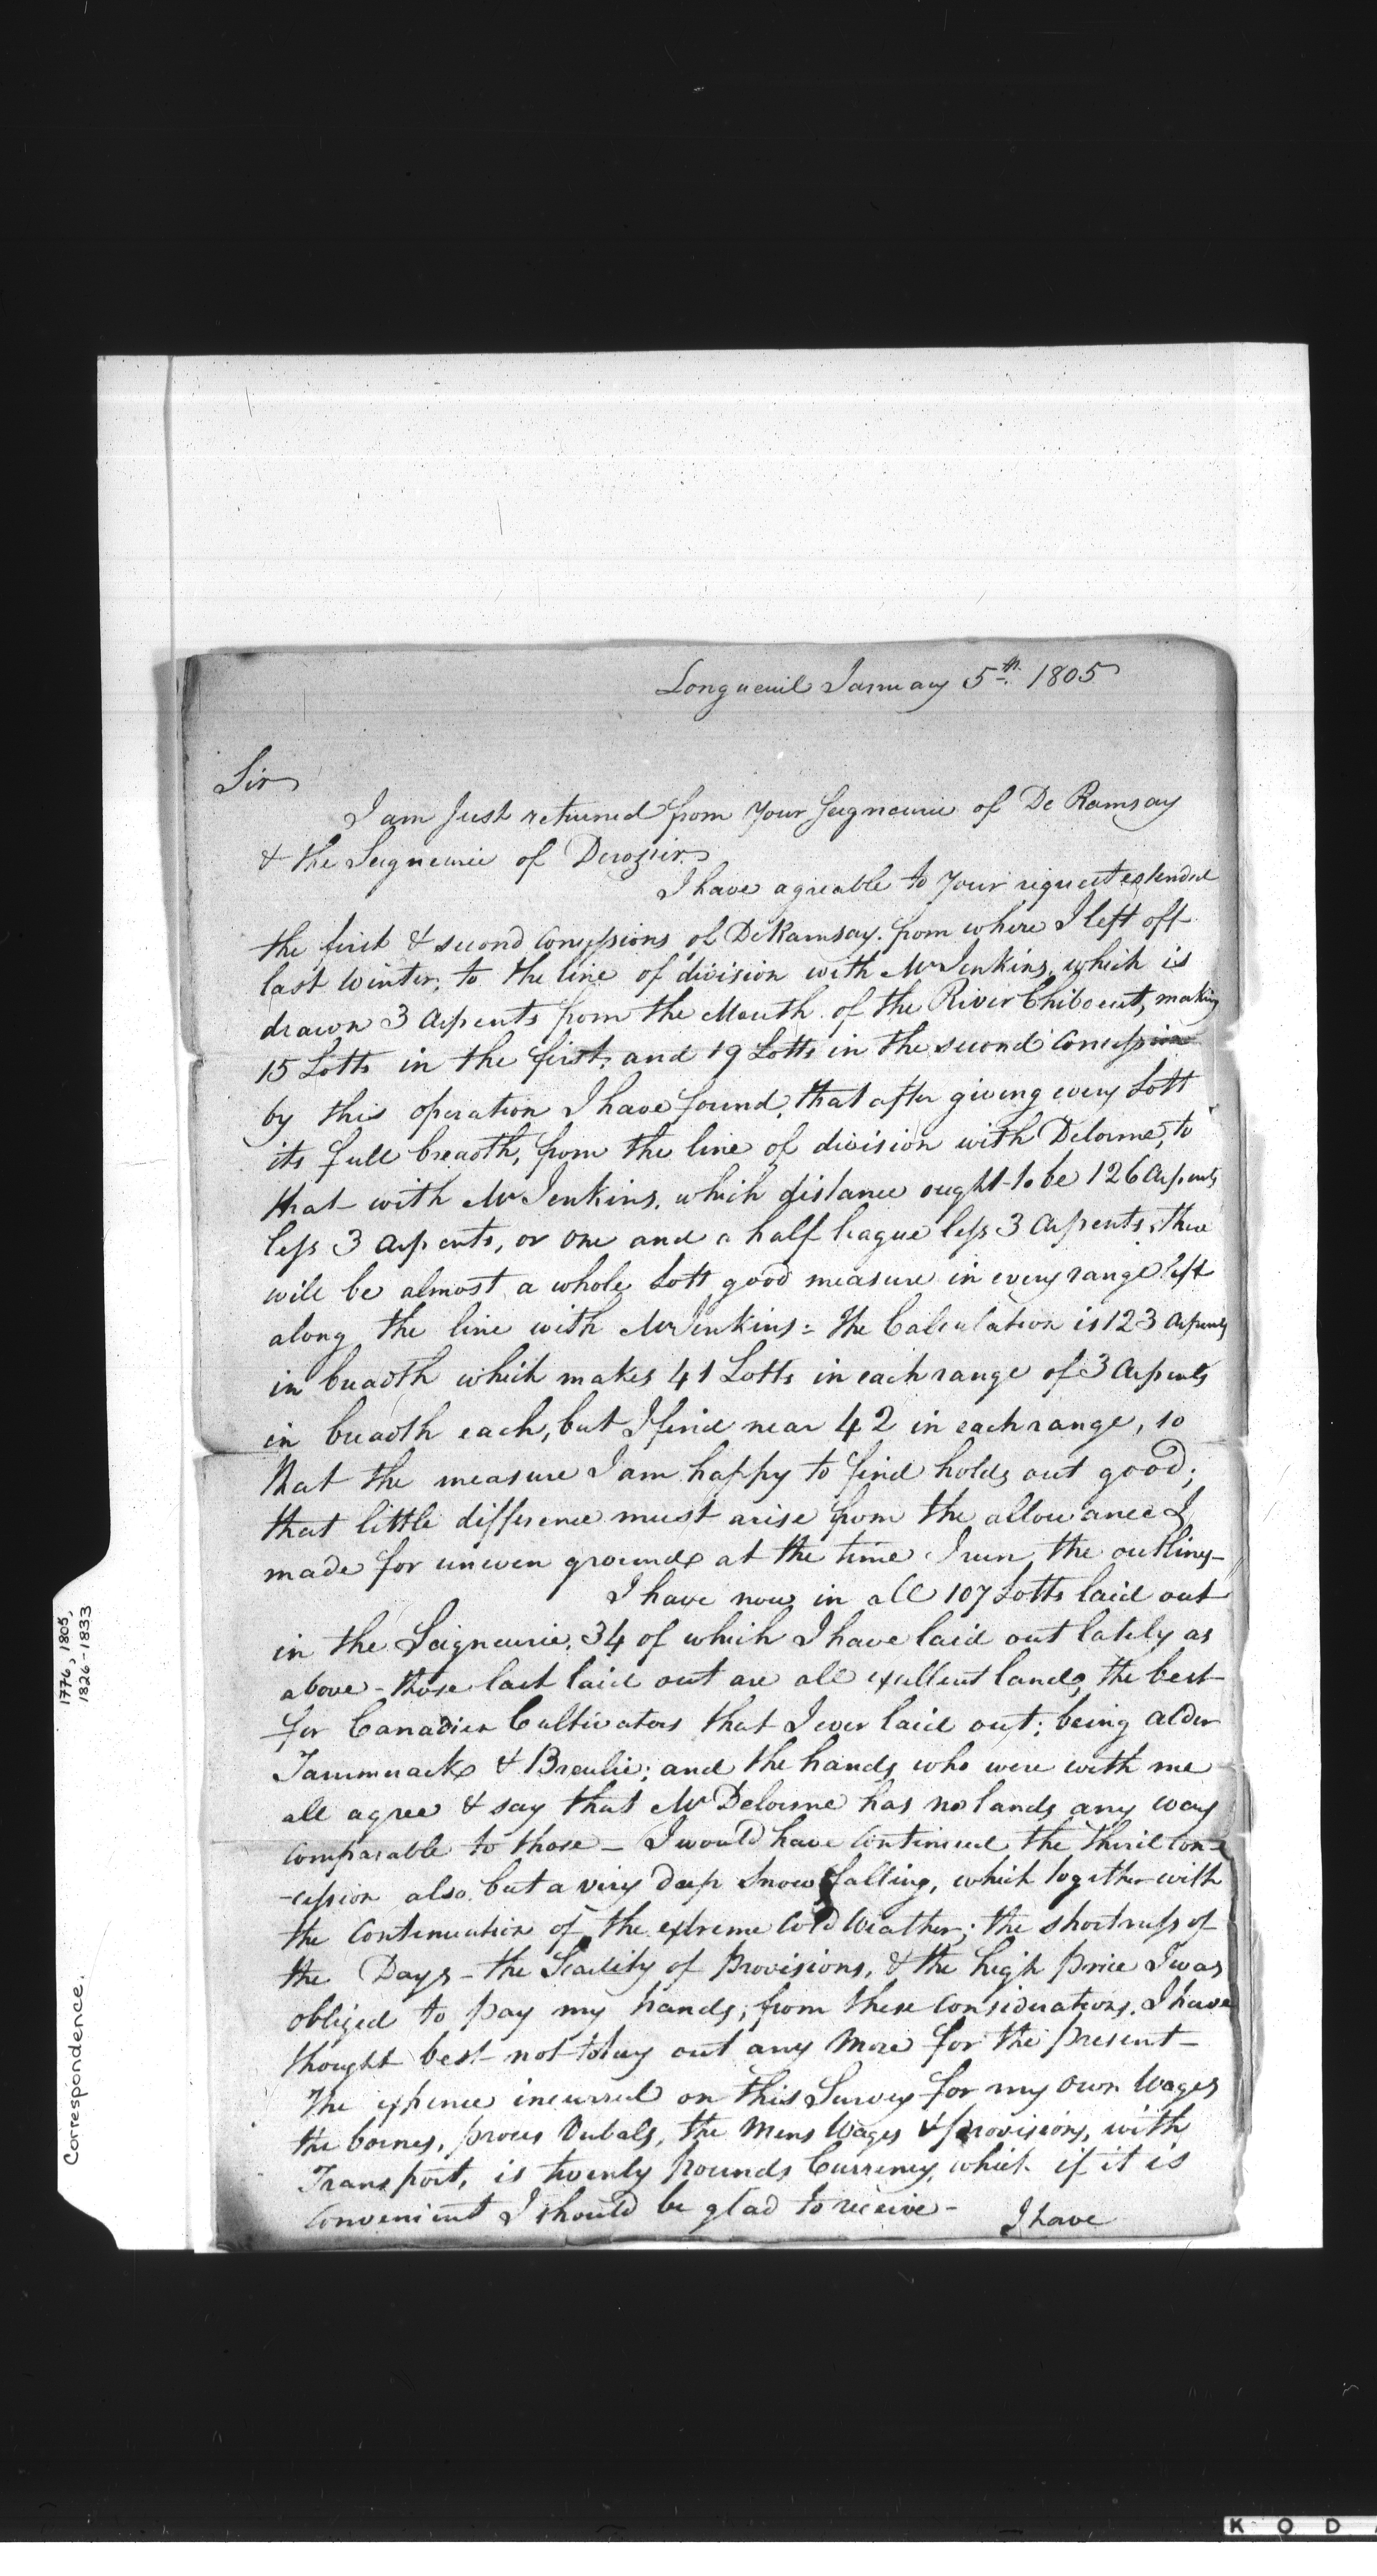 Longueuil January 5th. 1805
Sir
I am Just returned from Your Seigneurie of De Ramsay
& the Seigneurie of Derozier.
I have agreable to Your request extended
the first & second Concessions of De Ramsay. from where I left off
last Winter, to the line of division with Mr Jenkins, which is
drawn 3 Arpents from the Mouth of the River Chibouet, making
15 Lotts in the first, and 19 Lotts in the second Concession
by this operation I have found, that after giving every Lott
its full breadth, from the line of division with Delorme, to
that with Mr Jenkins. which distance ought to be 126 Arpents
less 3 Arpents, or one and a half league less 3 Arpents, there
will be almost a whole Lott good measure in every range left
along the line with Mr Jenkins: the Calculation is 123 Arpents
in breadth which makes 41 Lotts in each range of 3 Arpents
in breadth each, but I find near 42 in each range, so
that the measure I am happy to find holds out good;
that little difference must arise from the allowance I
made for uneven grounds at the time I run the outlines-
I have now in all 107 Lotts laid out
in the Seigneurie, 34 of which I have laid out lately as
above - those last laid out are all exellent lands, the best
for Canadien Cultivators that I ever laid out; being alder
Tammrack & Breulie; and the hands who were with me
all agree & say that Mr Delorme has no lands any way
comparable to those - I would have continued the third Con-
-cession also, but a very deep Snow falling, which together with
the Continuation of the extreme Cold Weather; the shortness of
the Days - the Scarcity of Provisions, & the high Price I was
obliged to pay my hands; from these Considerations, I have
thought best not to lay out any More for the present-
The expence incurred on this Survey for my own Wages
the bornes, proces Verbals, the Mens Wages & provisions, with
Transport, is twenty Pounds Currency, which if it is
Convenient I should be glad to receive-
I have
Correspondence.
1776, 1805,
1826-1833
K O D